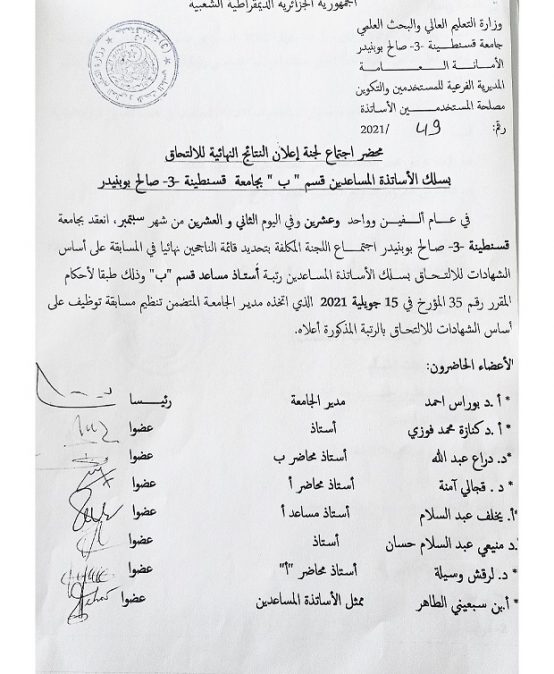 الجمهورية الجزائرية الديمقراطية الشعبية
وزارة التعليم العالي والبحث العلمي
جامعة قسنطينة -3- صالح بوبنيدر
الأمانة العامة
المديرية الفرعية للمستخدمين والتكوين
مصلحة المستخدمين الأساتذة
رقم: 49 /2021
محضر اجتماع لجنة إعلان النتائج النهائية للالتحاق
بسلك الأساتذة المساعدين قسم " ب " بجامعة قسنطينة -3- صالح بوبنيدر
في عام ألفين وواحد وعشرين وفي اليوم الثاني و العشرين من شهر سبتمبر، انعقد بجامعة
قسنطينة -3- صالح بوبنيدر اجتماع اللجنة المكلفة بتحديد قائمة الناجحين نهائيا في المسابقة على أساس
الشهادات للالتحاق بسلك الأساتذة المساعدين رتبة أستاذ مساعد قسم "ب" وذلك طبقا لأحكام
المقرر رقم 35 المؤرخ في 15 جويلية 2021 الذي اتخذه مدير الجامعة المتضمن تنظيم مسابقة توظيف على
أساس الشهادات للالتحاق بالرتبة المذكورة أعلاه.
الأعضاء الحاضرون:
* أ.د بوراس احمد مدير الجامعة رئيسا
* أ.د كنازة محمد فوزي أستاذ عضوا
*د. دراع عبد الله أستاذ محاضر ب عضوا
* د. قجالي آمنة أستاذ محاضر أ عضوا
*أ. يخلف عبد السلام أستاذ مساعد أ عضوا
د منيعي عبد السلام حسان أستاذ عضوا
* د. لرقش وسيلة أستاذ محاضر "أ" عضوا
* أ.بن سبعيني الطاهر ممثل الأساتذة المساعدين عضوا